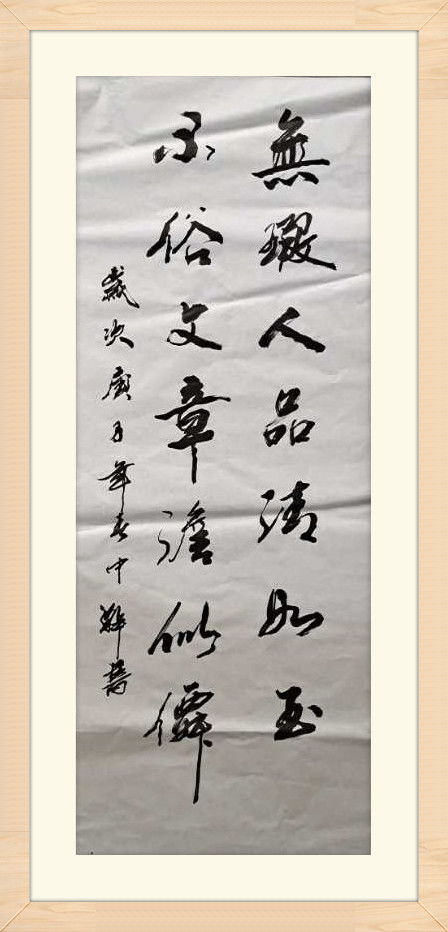 無瑕人品清如玉
不俗文章澹似僊
歲次庚子年春中